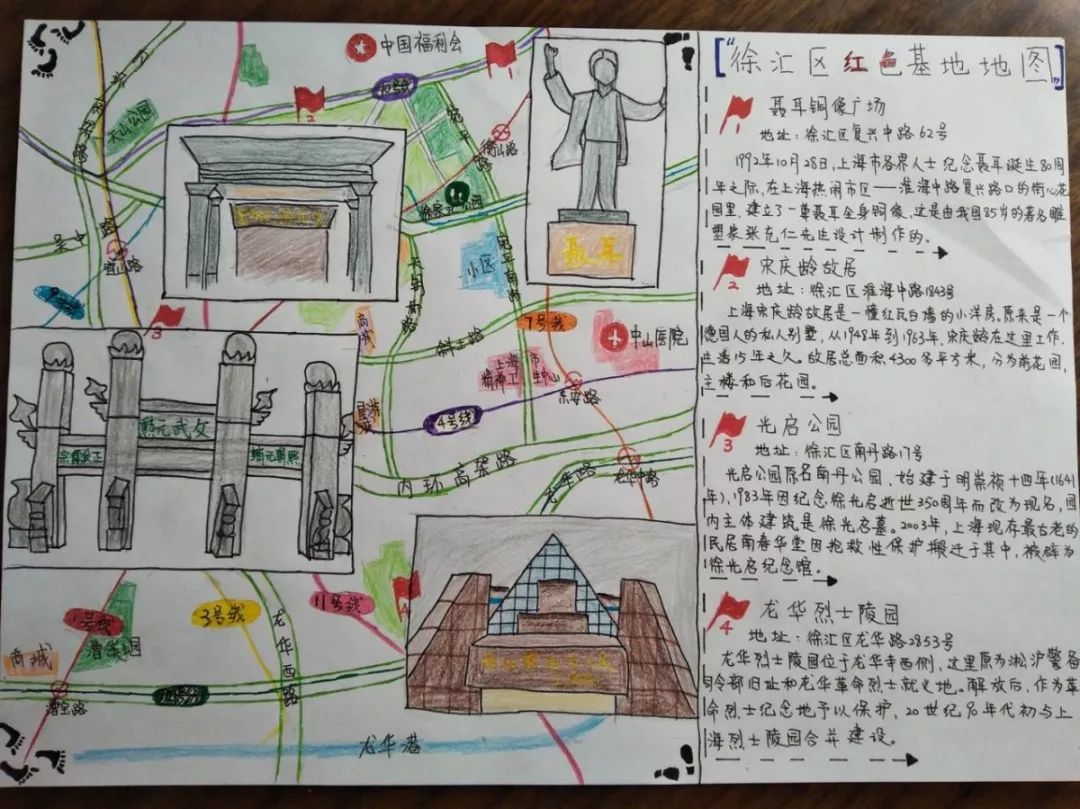 中国福利会
10号线
天山公园
2
1
衡山路
徐家汇公园
吴中路
宜山路
9号线
天钥桥路
宛平南路
小区
聂耳
商城
斜土路
7号线
中山医院
3
上海市
精神卫生中心
东安路
4号线
文武元勲
内环高架路
龙华路
龙华中路
1号线
3号线
11号线
4
漕溪公园
商城
漕宝路
12号线
龙华西路
龙华港
["徐汇区红色基地地图"]
1 聂耳铜像广场
地址:徐汇区复兴中路62号
1992年10月28日,上海市各界人士纪念聂耳诞生80周
年之际,在上海热闹市区——淮海中路复兴路口的街心花
园里,建立了一尊聂耳全身铜像。这是由我国85岁的著名雕
塑家张充仁先生设计制作的。
2 宋庆龄故居
地址:徐汇区淮海中路1843号
上海宋庆龄故居是一幢红瓦白墙的小洋房。原来是一个
德国人的私人别墅,从1948年到1963年,宋庆龄在这里工作、
生活15年之久。故居总面积4300多平方米,分为前花园,
主楼和后花园。
3 光启公园
地址:徐汇区南丹路17号
光启公园原名南丹公园,始建于明崇祯十四年(1641
年),1983年因纪念徐光启逝世350周年而改为现名,园
内主体建筑是徐光启墓。2003年,上海现存最古老的
民居南春华堂因抢救性保护搬迁于其中,被辟为
徐光启纪念馆。
4 龙华烈士陵园
地址:徐汇区龙华路2853号
龙华烈士陵园位于龙华寺西侧,这里原为淞沪警备
司令部旧址和龙华革命烈士就义地。解放后,作为革
命烈士纪念地予以保护,20世纪90年代初与上
海烈士陵园合并建设。